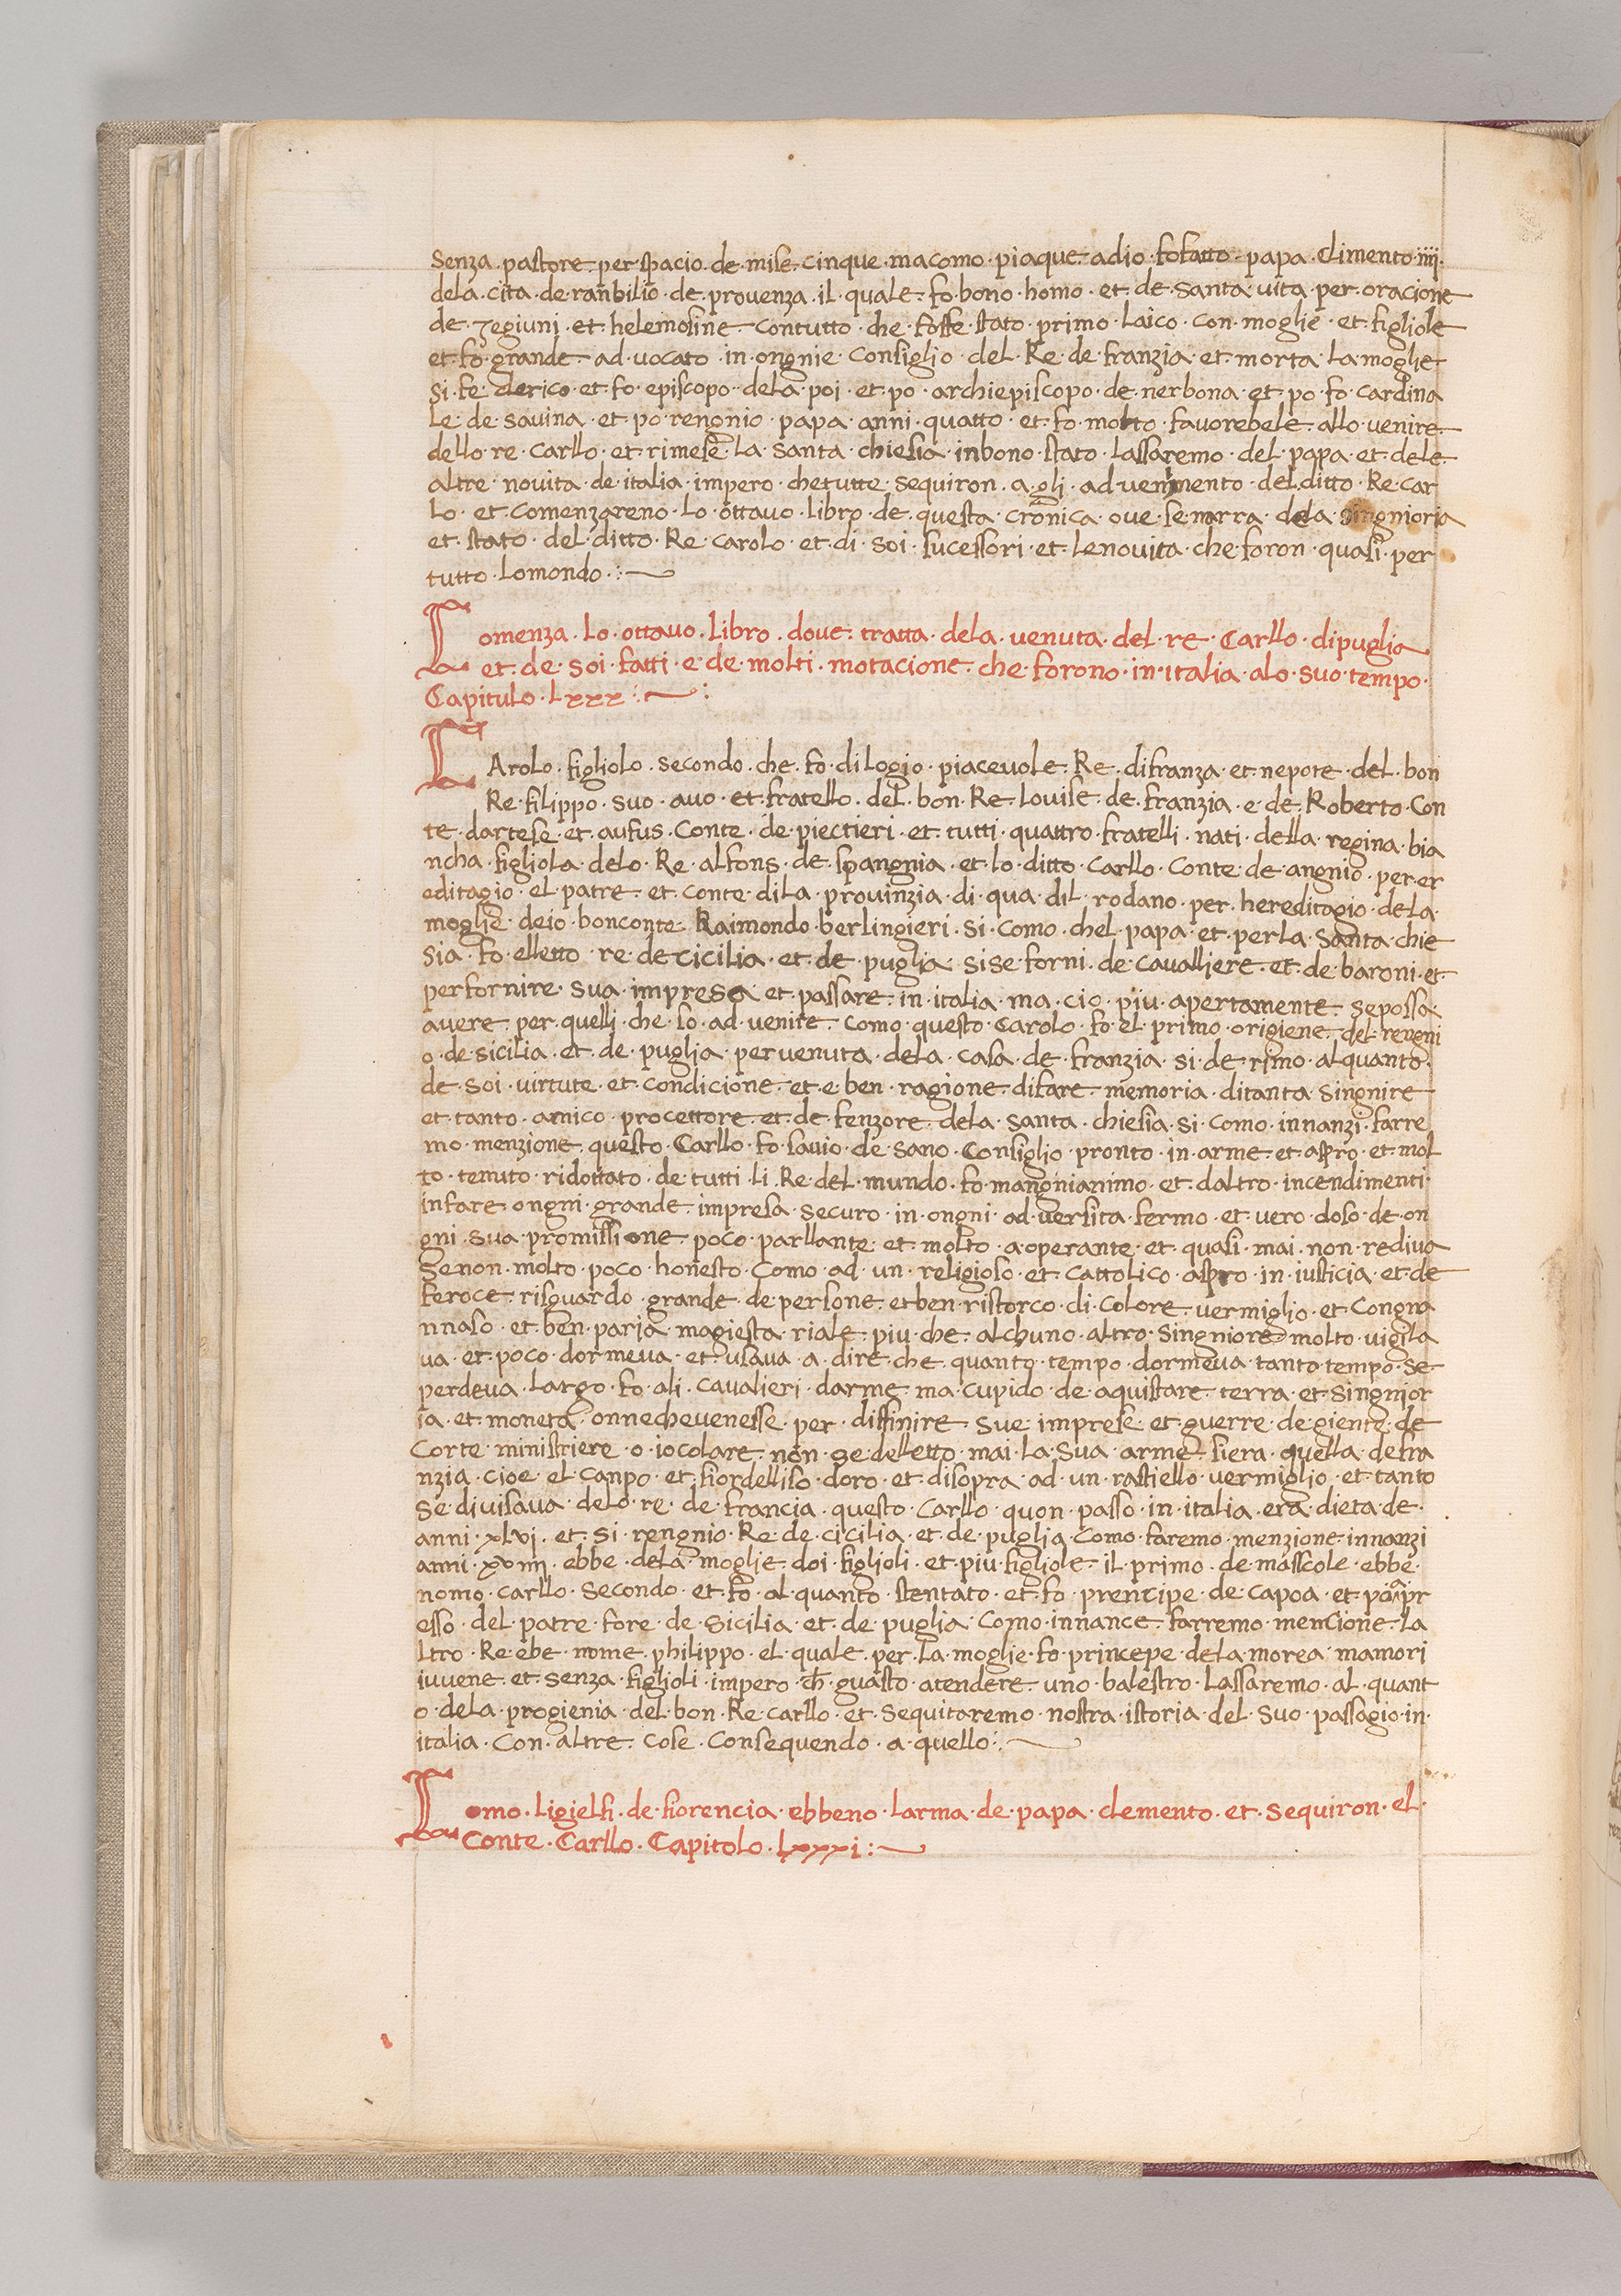 Senza · pastore · per · spacio · de · mise · cinque · macomo · piaque · adio · fofatto · papa · Climento · iiij ·
dela · cita · de · ranbilio · de · provenza · il · quale · fo · bono · homo · et · de · santa · vita · per · oracione
de · zegiuni · et · helemosine · contutto · che · fosse · stato · primo · laico · con · moglie · et · figliole
et · fo · grande · ad · vocato · in · ongnie · consiglio · del · Re · de · franzia · et · morta · la · moglie ·
si · fe · clerico · et · fo · episcopo · dela · poi · et · po · archiepiscopo · de · nerbona · et · po · fo · cardina
le · de · savina · et · po · rengnio · papa · anni · quatto · et · fo · molto · favorebele · allo · venire ·
dello · re · Carllo · et · rimese · la · santa · chiesia · inbono · stato · lassaremo · del · papa · et · dele ·
altre · novita · de · italia · impero · chetutte · sequiron · a · gli · ad venimento · del · ditto · Re · car
lo · et · comenzareno · lo · ottavo · libro · de · questa · cronica · ove · se · narra · dela · singnioria
et · stato · del · ditto · Re · carolo · et · di · soi · sucessori · et · lenovita · che · foron · quasi · per ·
tutto · lomondo ·:~
Comenza · lo · ottavo · libro · dove · tratta · dela · venuta · del · re · Carllo · dipuglia
et · de · soi · fatti · e · de · molti · motacione · che · forono · in · italia · alo · suo · tempo ·
Capitulo · Lxxx :~:
CArolo · figliolo · secondo · che · fo · di logio · piacevole · Re · difranza · et · nepote · del · bon
Re · filippo · suo · avo · et · fratello · del · bon · Re · Louise · de · franzia · e · de · Roberto · Con
te · dartese · et · aufus · Conte · de · piectieri · et · tutti · quattro · fratelli · nati · della · regina · bia
ncha · figliola · delo · Re · alfons · de · spangnia · et · lo · ditto · Carllo · conte · de · angnio · per · er
editagio · el · patre · et · conte · di la · provinzia · di · qua · dil · rodano · per · hereditagio · dela ·
moglie · deio · bonconte · Raimondo · berlingieri · si · como · chel · papa · et · perla · santa · chie
sia · fo · elletto · re · de cicilia · et · de · puglia · sise · forni · de · cavalliere · et · de · baroni · et ·
perfornire · sua · impresa · et · passare · in · italia · ma · cio · piu · apertamente · sepossa ·
avere · per · quelli · che · so · ad · venire · como · questo · Carolo · fo · el · primo · origiene · del · rengni
o · de sicilia · et · de · puglia · pervenuta · dela · casa · de · franzia · si · de · rimo · alquanto ·
de · soi · virtute · et · condicione · et · e · ben · ragione · difare · memoria · ditanta · singnire
et · tanto · amico · procettore · et · de · fenzore · dela · santa · chiesia · si · como · innanzi · farre
mo · menzione · questo · Carllo · fo · savio · de · sano · Consiglio · pronto · in · arme · et · aspro · et · mol
to · temuto · ridottato · de · tutti · li · Re · del · mundo · fo · mangnianimo · et · daltro · incendimenti ·
infare · ongni · grande · impresa · securo · in · ongni · ad · versita · fermo · et · vero · doso · de · on
gni · sua · promissione · poco · parllante · et · molto · a · operante · et · quasi · mai · non · rediva
se non · molto · poco · honesto · como · ad · un · religioso · et · cattolico · aspro · in · iusticia · et · de
feroce · risguardo · grande · de · persone · et ben · ristorco · di · colore · vermiglio · et · Congra
nnaso · et · ben · paria · magiesta · riale · piu · che · alchuno · altro · singniore molto · vigila
va · et · poco · dormeva · et · usava · a · dire · che · quanto · tempo · dormeva · tanto tempo · se ·
perdeva · largo · fo · ali · cavalieri · darme · ma · cupido · de · aquistare · terra · et · singnior
ia · et · moneta · onnechevenesse · per · diffinire · sue · imprese · et · guerre · de giente · de
Corte · ministriere · o · iocolare · non · se · delletto · mai · la · sua · arme · siera · quella · defra
nzia · cioe · el · canpo · et · fiordelliso · doro · et · disopra · ad · un · rastiello · vermiglio · et · tanto
se · divisava · delo · re · de · francia · questo · Carllo · quon · passo · in · italia · era · dieta · de ·
anni · xlvj · et · si · rengnio · Re · de · cicilia · et · de · puglia · como · faremo · menzione · innanzi
anni · xviiij · ebbe · dela · moglie · doi · figlioli · et · piu · figliole · il · primo · de · mascole · ebbe ·
nomo · carllo · secondo · et · fo · al · quanto · stentato · et · fo · prencipe · de · capoa · et · po apr
esso · del · patre · fore · de · sicilia · et · de · puglia · como · innance · farremo · mencione · la
ltro · Re · ebe · nome · philippo · el · quale · per · la · moglie · fo · princepe · de la · morea · ma mori
iuvene · et · senza · figlioli · impero · ch · guasto · atendere · uno · balestro · lassaremo · al · quant
o · dela · progienia · del · bon · Re · carllo · et · sequitaremo · nostra · istoria · del · suo · passagio · in ·
italia · Con · altre · cose · Consequendo · a · quello :~
Como · ligielfi · de · fiorencia · ebbeno · larma · de · papa · clemento · et · sequiron · el ·
Conte · Carllo · Capitolo · Lxxxi :~